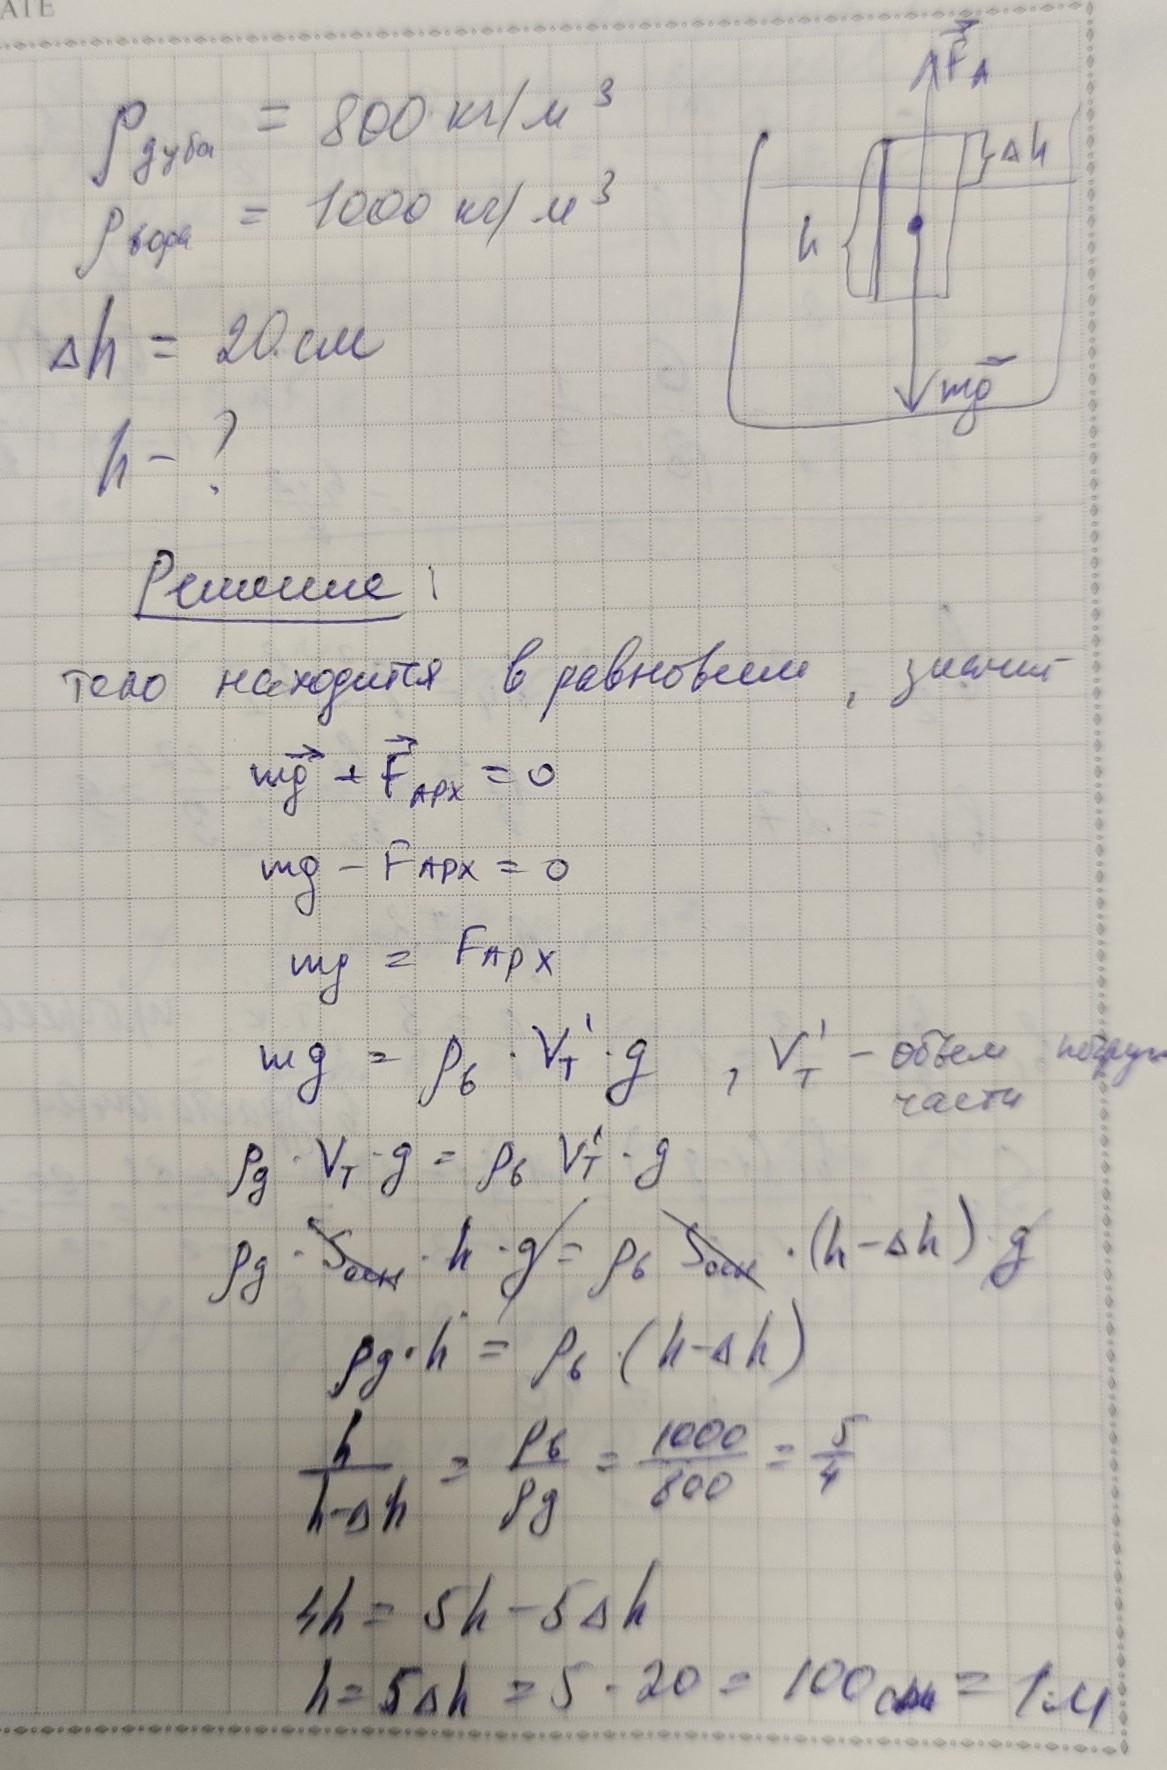 ATE
ρдуба = 800 кг/м³
ρводы = 1000 кг/м³
Δh = 20 см
h - ?
F⃗A
Δh
h
mg⃗
Решение:
тело находится в равновесии, значит
mg⃗ + F⃗АРХ = 0
mg - FАРХ = 0
mg = FАРХ
mg = ρв · Vт' · g , Vт' - объем погруж
части
ρд · Vт · g = ρв Vт' · g
ρд · Sосн · h · g = ρв Sосн · (h - Δh) g
ρд · h = ρв · (h - Δh)
h/(h-Δh) = ρв/ρд = 1000/800 = 5/4
4h = 5h - 5Δh
h = 5Δh = 5 · 20 = 100см = 1м